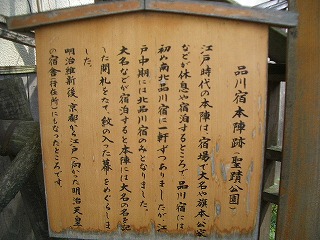 品川宿本陣跡(聖蹟公園)
江戸時代の本陣は、宿場で大名や旗本、公家
などが休息や宿泊するところで、品川宿には
初め南北品川宿に一軒ずつありましたが、江
戸中期には北品川宿のみとなりました。
大名などが宿泊すると本陣には大名の名を記
した関札をたて、紋の入った幕をめぐらしま
した。
明治維新後、京都から江戸へ向かった明治天皇
の宿舎(行在所)にもなったところです。